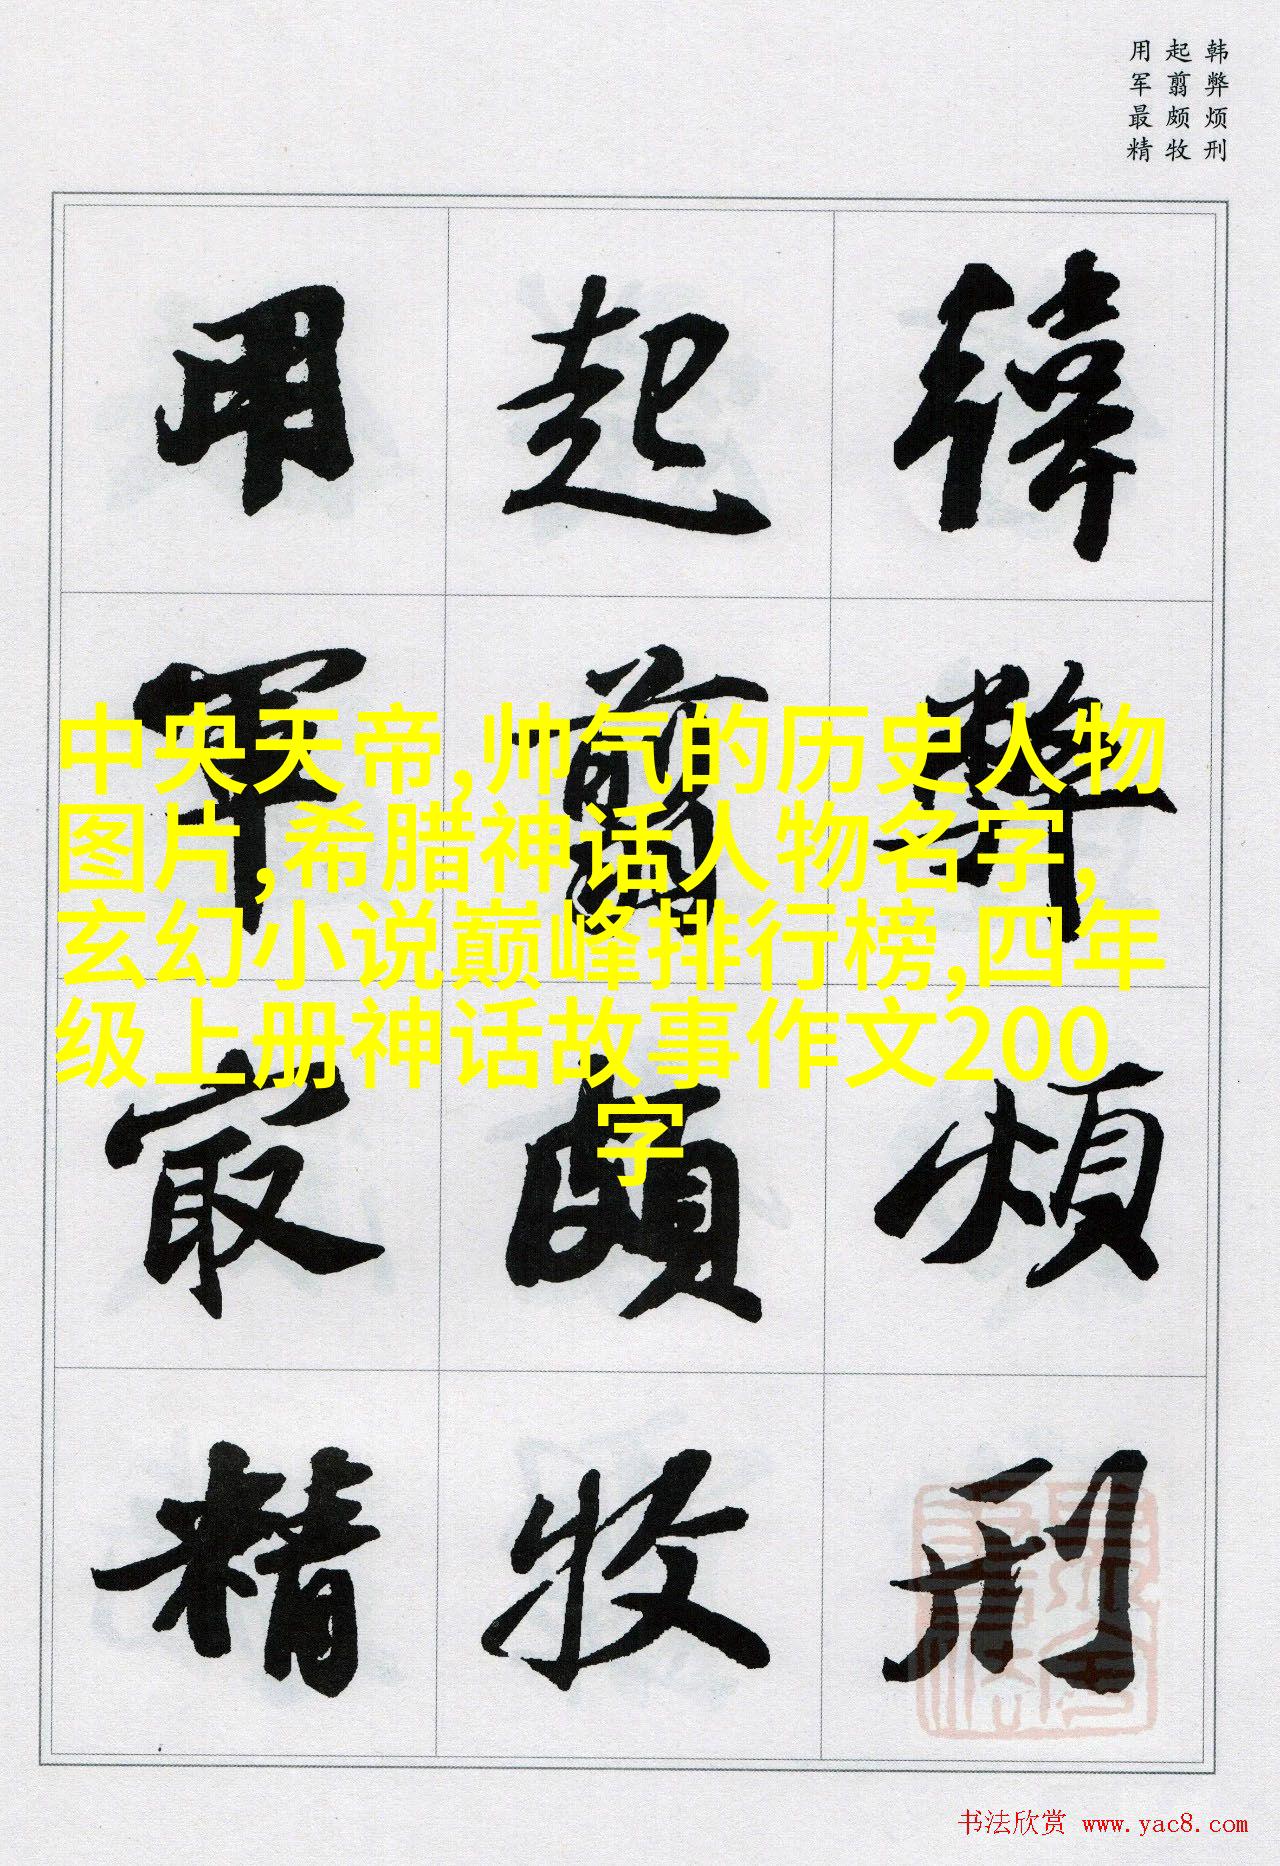 韩弊烦刑
起翦颇牧
用军最精
韓弊煩刑
起翦頗牧
用軍最精
中央天帝,帅气的历史人物
图片,希腊神话人物名字,
玄幻小说巅峰排行榜,四年
级上册神话故事作文200
字
书法欣赏 www.yac8.com